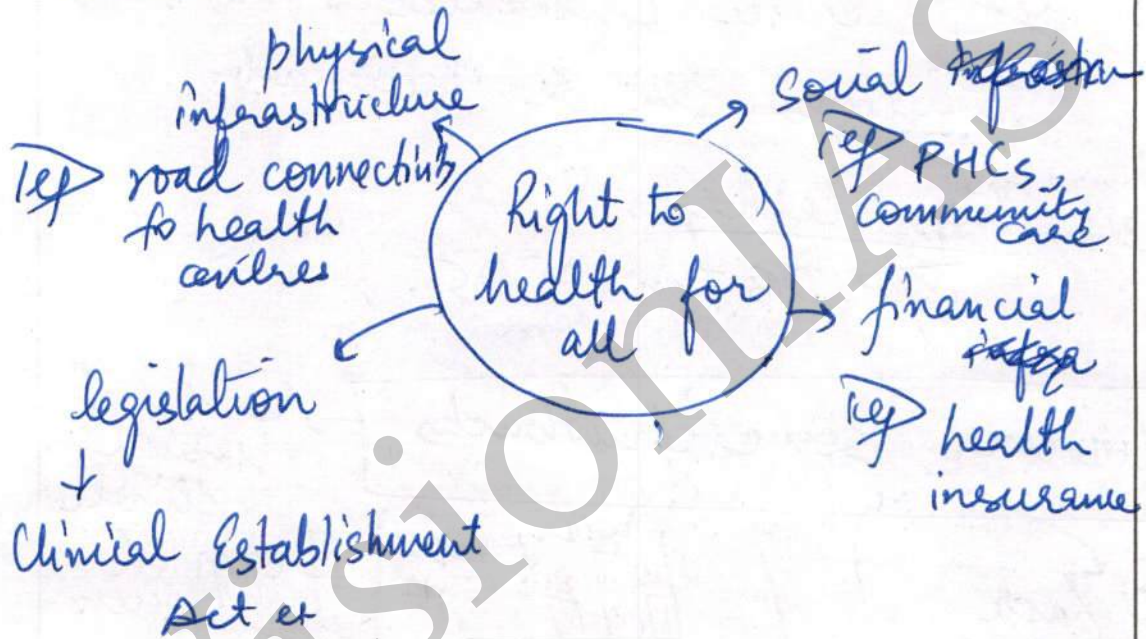 physical
infrastructure
eg road connectivity
to health
centres
Right to
health for
all
social
eg PHCs,
community
care
financial
eg health
insurance
legislation
Clinical Establishment
Act et
VisionIAS